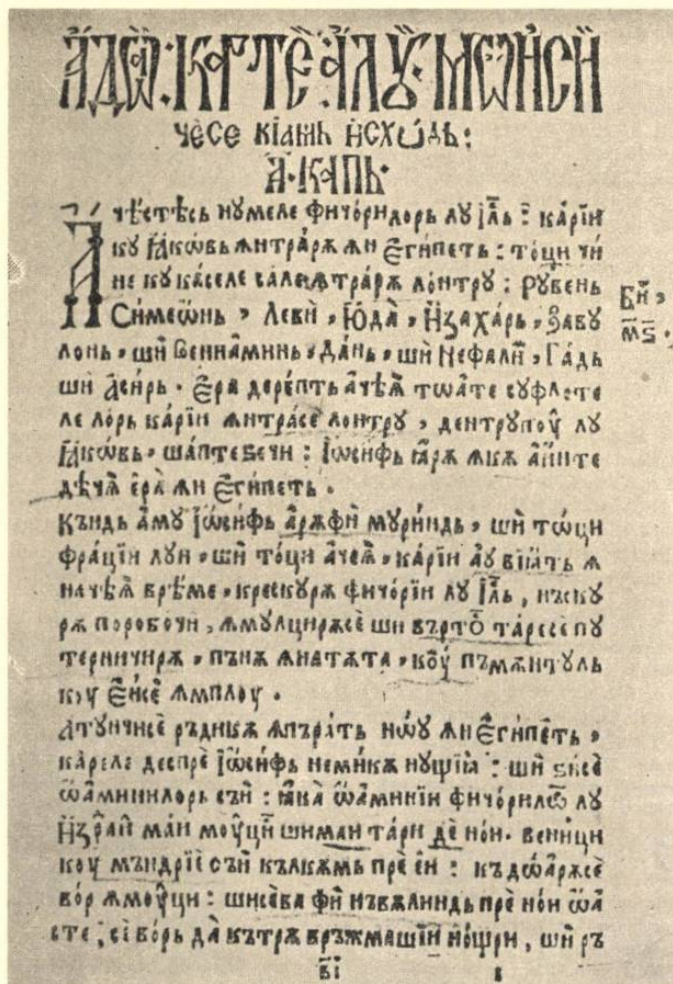 А҆ДѠ҆А · КАРТЕ · А҆ЛУ҆Й · МѠИ҆СИ҆
чѐсе кїамъ и҆схѡ́дь :
А҃ · КАПЬ ·
А҆че́стѣсь нумеле фичорилорь лу І҆и҃ль : ка́рїи
ку Їа҆ковь ꙟтра́рѫ ꙟн Є҆ги́петь : то́ци чи́
не ку ка́селе сале ꙟтра́рѫ ло́нтру : Рꙋ́вень
Симеѡ҆нь , Леви̂ , Ю҆да̀ , И҆заха́рь , Заву
лонь , ши̂ Венїами́нь , Да́нь , ши̂ Нефали̂ , Га́дь
ши̂ А҆си́рь . Є҆ра дере́пть а҆че́ѧ тѡа҆те суфлете
ле лорь ка́рїи ꙟтра́се ло́нтру , дентрупоу҆ лу
Їа҆ковь , ша́птезечи : І҆ѡси́фь їа҆рѫ ꙟкѫ а҆и́нте
дѣчѧ є҆ра̀ ꙟн Є҆ги́петь .
Къндь а҆му І҆ѡси́фь а҆рѫфи̂ мури́ндь , ши̂ тѡ́ци
фра́цїи луи , ши̂ то́ци а҆че́ѧ , ка́рїи а҆у вїа́ть ꙟ
начѣ́ѧ врѣ́ме , крескурѫ фичо́рїи лу І҆и҃ль , нъску
рѫ поробочи , ꙟмулцирѫсѐ ши върто́ с та́ресе пу
терничирѫ , пънѫ ꙟнатѫта , коу҆ пъмѫнтуль
коу Є҆и́се ꙟмплоу .
А҆тунчисѐ ръдикѫ ꙟпъра́ть но́у ꙟн Є҆ги́петь ,
ка́реле деспрѐ І҆ѡси́фь неми́кѫ нущїа̀ : ши̂ ѕи́се
ѡ҆а́минилорь съи̂ : їа҆ка̀ ѡ҆а́минїи фичо́рилѡр лу
И҆зра́и̂л ма́и моу҆ци̂ шимаи та́ри дѐ но́и . вени́ци
коу мъндрі́е съи̂ кълкѫмь прѐ є҆и : къдѡа҆рѫсѐ
во́р ꙟмоу҆ци : шисѐва фи̂ нъвѫли́ндь прѐ но́и ѡ҆а
сте , є҆і во́рь да̀ кътрѫ врѫжма́шїи но́щри , ши̂ ръ
Би҃ ,
м҃ѕ .
в҃і в